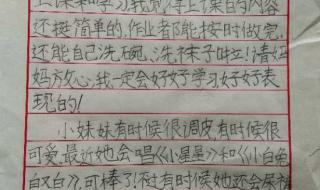 上课和学习我觉得上课的内容
还挺简单的,作业者阝能按时做完,
还能自己洗碗、洗袜子哇!请妈
妈放心,我一定会好好学习好好表
现的!
小妹妹有时候很调皮有时候很
可爱,最近她会唱《小星星》和《小白兔
白又白》,可棒了!不过有时候她还会尿裤